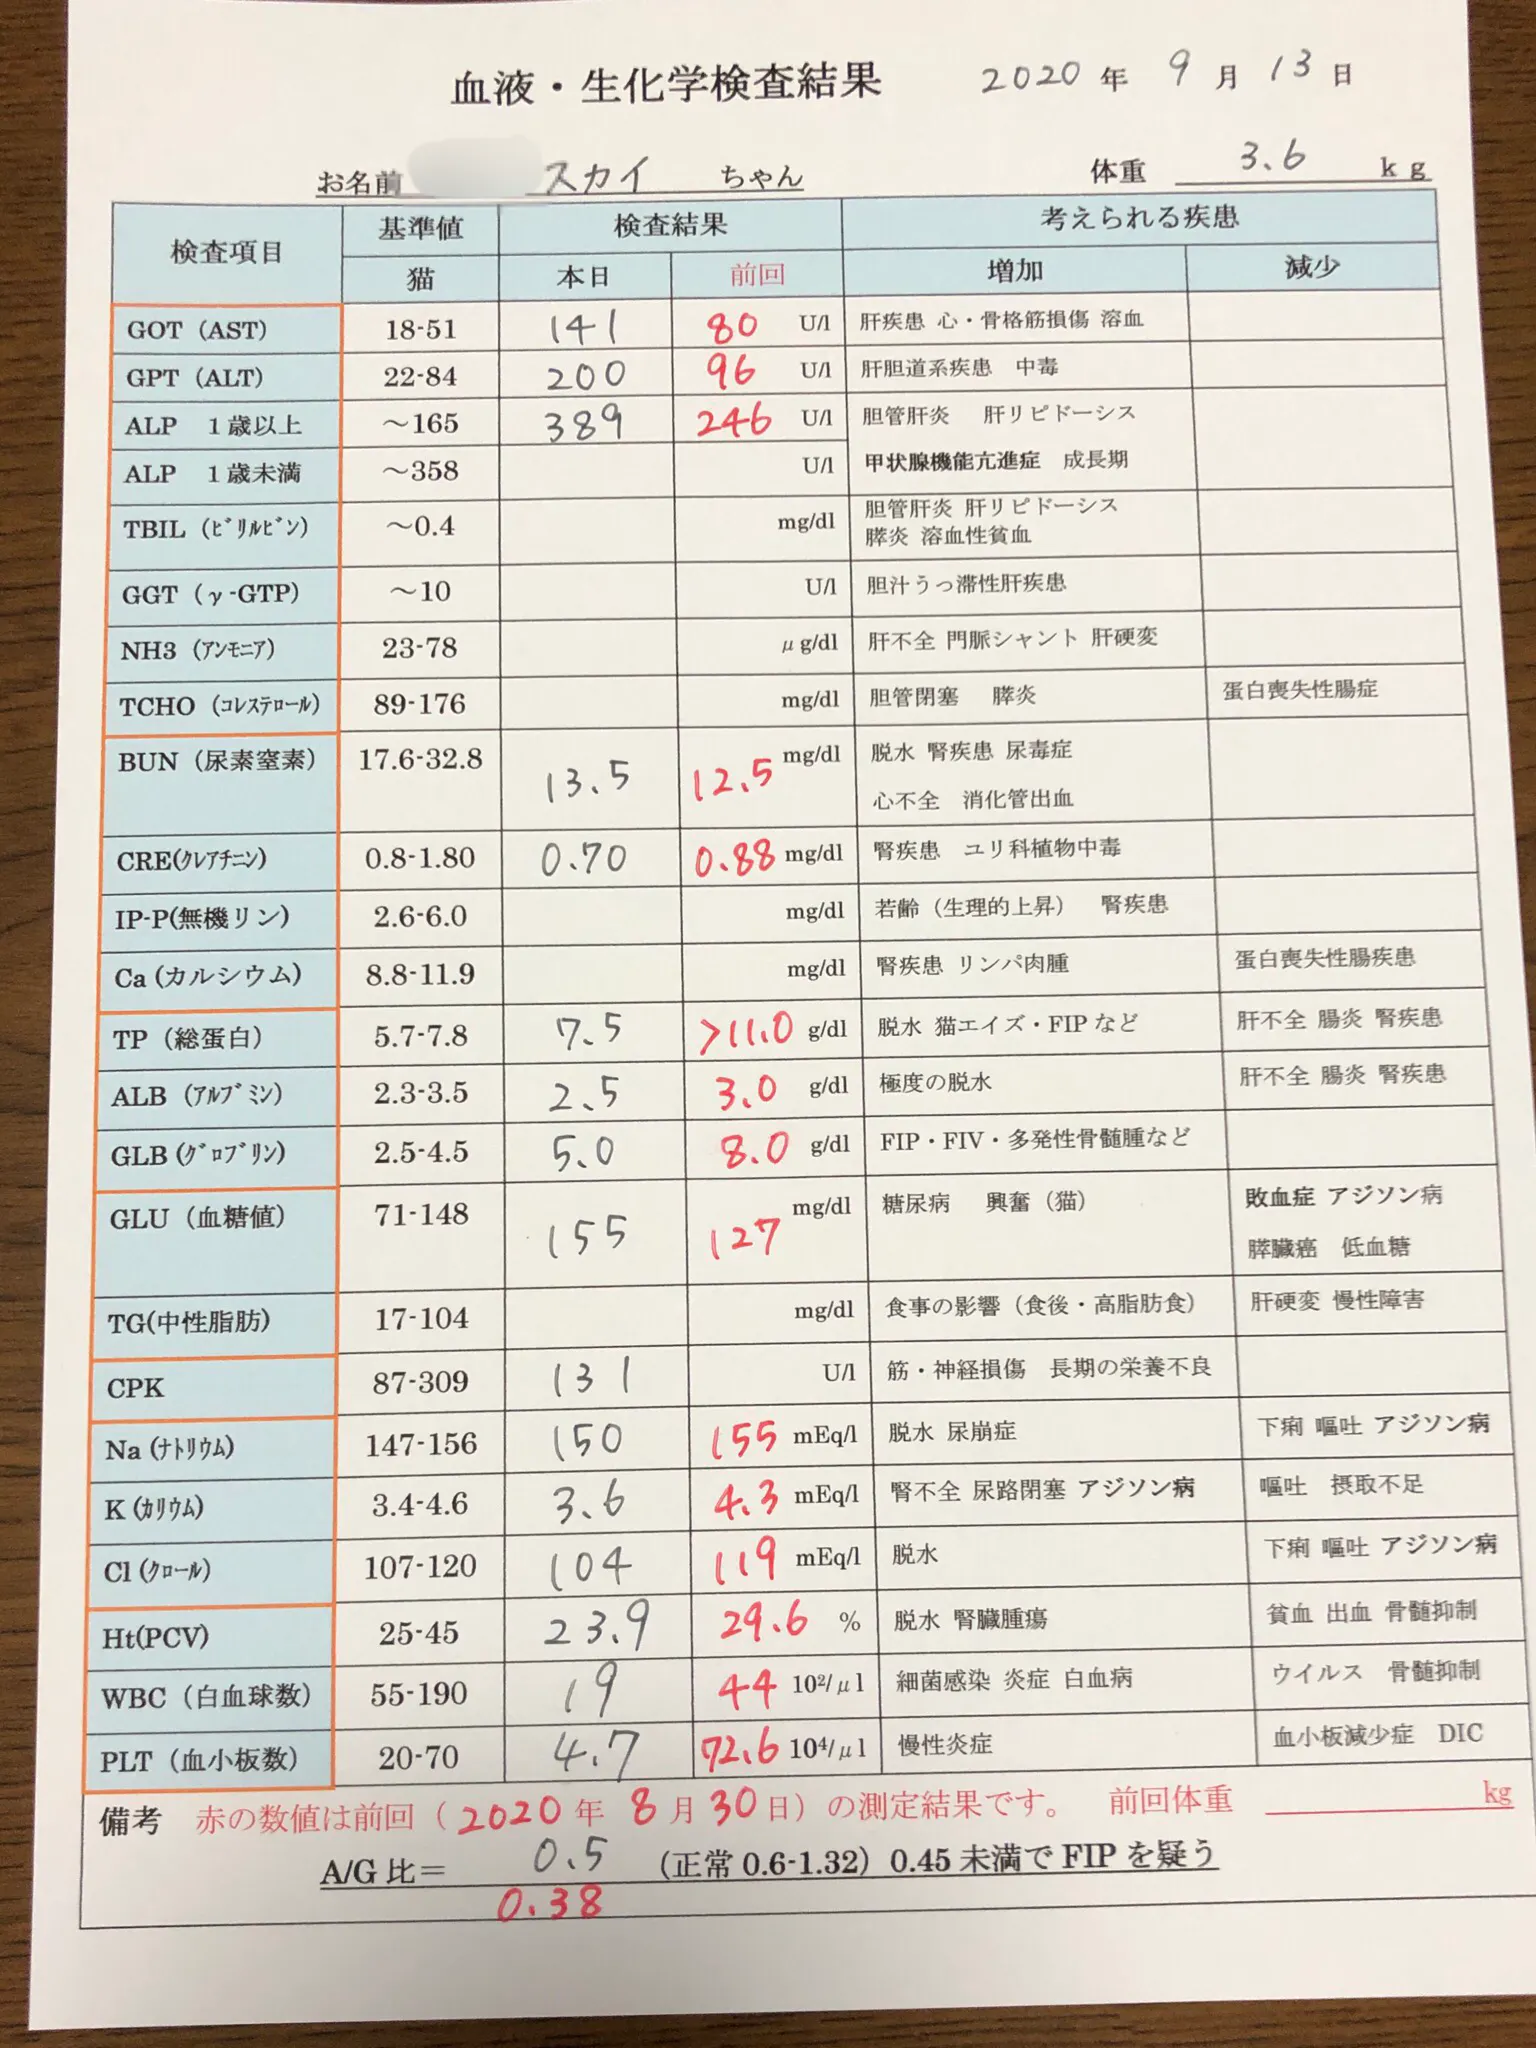 血液・生化学検査結果 2020 年 9 月 13 日
お名前 スカイ ちゃん 体重 3.6 kg
検査項目 基準値 検査結果 考えられる疾患
猫 本日 前回 増加 減少
GOT（AST） 18-51 141 80 U/l 肝疾患 心・骨格筋損傷 溶血
GPT（ALT） 22-84 200 96 U/l 肝胆道系疾患 中毒
ALP 1歳以上 ～165 389 246 U/l 胆管肝炎 肝リピドーシス
ALP 1歳未満 ～358 U/l 甲状腺機能亢進症 成長期
TBIL（ﾋﾞﾘﾙﾋﾞﾝ） ～0.4 mg/dl 胆管肝炎 肝リピドーシス
膵炎 溶血性貧血
GGT（γ-GTP） ～10 U/l 胆汁うっ滞性肝疾患
NH3（ｱﾝﾓﾆｱ） 23-78 μg/dl 肝不全 門脈シャント 肝硬変
TCHO（ｺﾚｽﾃﾛｰﾙ） 89-176 mg/dl 胆管閉塞 膵炎 蛋白喪失性腸症
BUN（尿素窒素） 17.6-32.8 13.5 12.5 mg/dl 脱水 腎疾患 尿毒症
心不全 消化管出血
CRE(ｸﾚｱﾁﾆﾝ) 0.8-1.80 0.70 0.88 mg/dl 腎疾患 ユリ科植物中毒
IP-P(無機リン) 2.6-6.0 mg/dl 若齢（生理的上昇） 腎疾患
Ca（カルシウム） 8.8-11.9 mg/dl 腎疾患 リンパ肉腫 蛋白喪失性腸疾患
TP（総蛋白） 5.7-7.8 7.5 >11.0 g/dl 脱水 猫エイズ・FIPなど 肝不全 腸炎 腎疾患
ALB（ｱﾙﾌﾞﾐﾝ） 2.3-3.5 2.5 3.0 g/dl 極度の脱水 肝不全 腸炎 腎疾患
GLB（ｸﾞﾛﾌﾞﾘﾝ） 2.5-4.5 5.0 8.0 g/dl FIP・FIV・多発性骨髄腫など
GLU（血糖値） 71-148 155 127 mg/dl 糖尿病 興奮（猫） 敗血症 アジソン病
膵臓癌 低血糖
TG(中性脂肪) 17-104 mg/dl 食事の影響（食後・高脂肪食） 肝硬変 慢性障害
CPK 87-309 131 U/l 筋・神経損傷 長期の栄養不良
Na（ﾅﾄﾘｳﾑ） 147-156 150 155 mEq/l 脱水 尿崩症 下痢 嘔吐 アジソン病
K（ｶﾘｳﾑ） 3.4-4.6 3.6 4.3 mEq/l 腎不全 尿路閉塞 アジソン病 嘔吐 摂取不足
Cl（ｸﾛｰﾙ） 107-120 104 119 mEq/l 脱水 下痢 嘔吐 アジソン病
Ht(PCV) 25-45 23.9 29.6 % 脱水 腎臓腫瘍 貧血 出血 骨髄抑制
WBC（白血球数） 55-190 19 44 10²/μl 細菌感染 炎症 白血病 ウイルス 骨髄抑制
PLT（血小板数） 20-70 4.7 72.6 10⁴/μl 慢性炎症 血小板減少症 DIC
備考 赤の数値は前回（2020 年 8 月 30 日）の測定結果です。 前回体重 kg
A/G 比＝ 0.5 （正常 0.6-1.32）0.45 未満で FIP を疑う
0.38